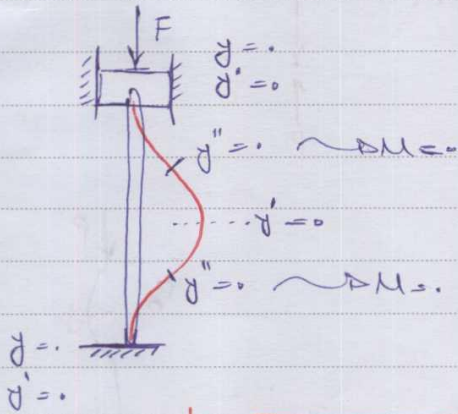 F
y = 0
y' = 0
y'' = 0 → M = 0
y' = 0
y'' = 0 → M = 0
y = 0
y' = 0